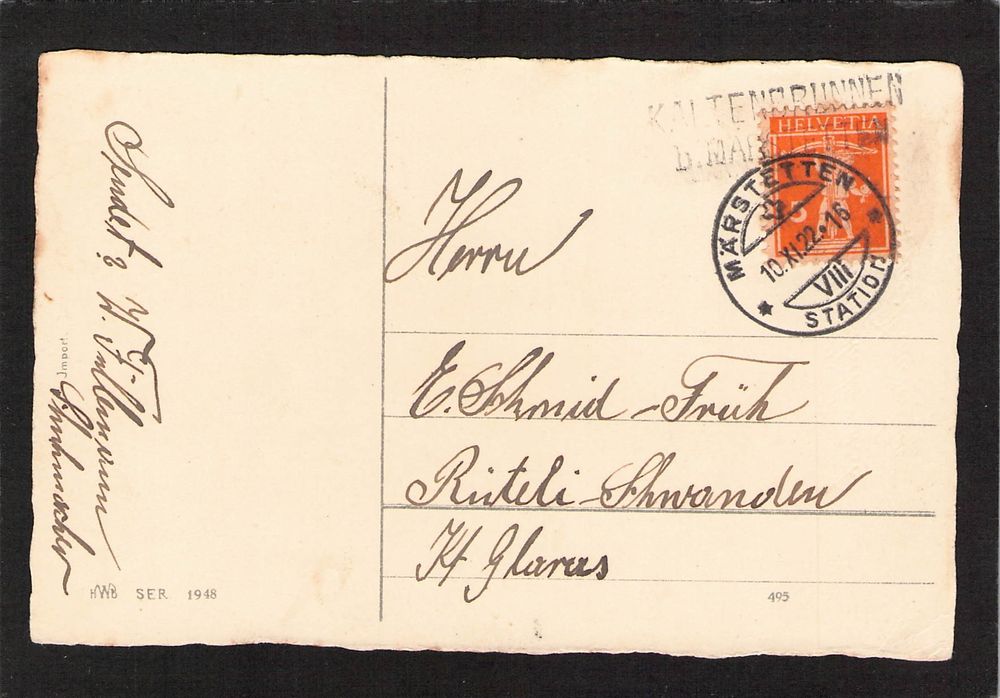 KALTENBRUNNEN
B. MÄR
HELVETIA
5
MÄRSTETTEN
10.XI.22.16
VIII
STATION
Herrn
E. Schmid-Früh
Rüteli-Schwanden
Kt Glarus
495
Sendet
Schuhmacher
Import
HWB SER 1948